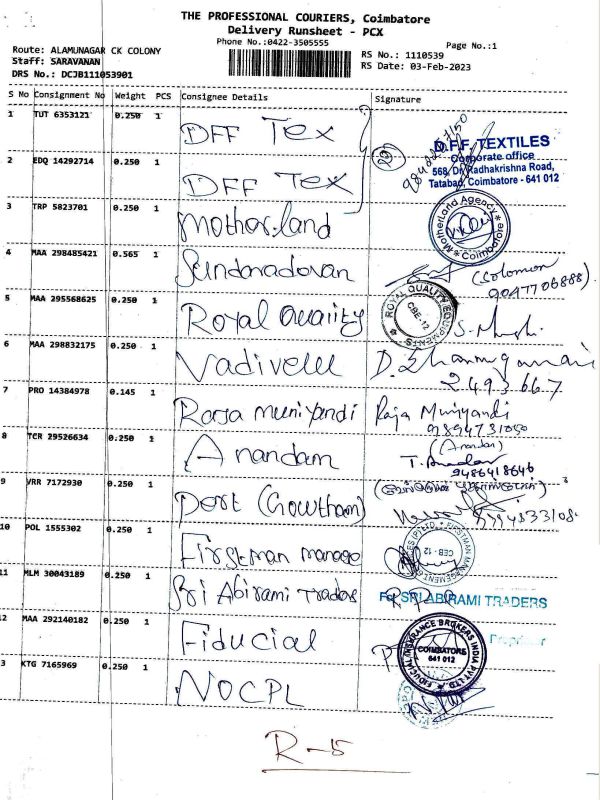 THE PROFESSIONAL COURIERS, Coimbatore
Delivery Runsheet - PCX
Phone No.:0422-3505555
Page No.:1
Route: ALAMUNAGAR CK COLONY
RS No.: 1110539
Staff: SARAVANAN
RS Date: 03-Feb-2023
DRS No.: DCJB111053901
S No Consignment No Weight PCS Consignee Details Signature
1 TUT 6353121 0.250 1 DFF Tex
D.F.F. TEXTILES
Corporate office
568, Dr. Radhakrishna Road,
Tatabad, Coimbatore - 641 012
2 EDQ 14292714 0.250 1 DFF Tex
3 TRP 5823701 0.250 1 Motherland
MotherLand Agency * Coimbatore *
4 MAA 298485421 0.565 1 Sundaradevan
(Solomon
9047706888).
5 MAA 295568625 0.250 1 Royal Quality
ROYAL QUALITY EQUIPMENTS
CBE-12
6 MAA 298832175 0.250 1 Vadivelu
2493667
7 PRO 14384978 0.145 1 Raja muniyandi
Raja Muniyandi
9894731050
8 TCR 29526634 0.250 1 Anandam
(Anandan)
9486418646
9 VRR 7172930 0.250 1 Port (Gowtham)
10 POL 1555302 0.250 1 Firstman manage
FIRSTMAN MANAGEMENT
CEB-12
11 MLM 30043189 0.250 1 Sri Abirami Traders
For SRI ABIRAMI TRADERS
Proprietor
12 MAA 292140182 0.250 1 Fiducial
FIDUCIAL INSURANCE BROKERS INDIA PVT LTD
COIMBATORE
641 012
3 KTG 7165969 0.250 1 NOCPL
R-15